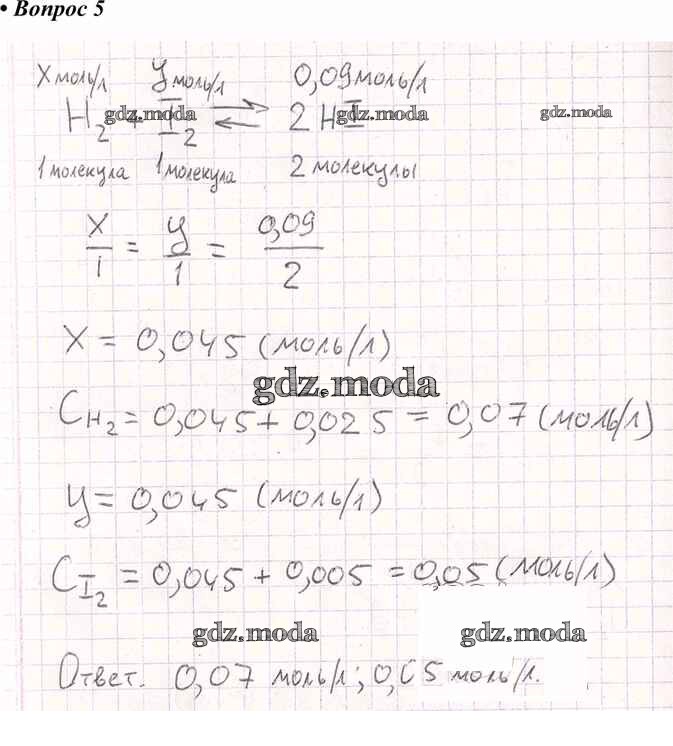 • Вопрос 5
X моль/л   y моль/л   0,09 моль/л
H₂ + I₂ ⇄ 2 HI
gdz.moda   gdz.moda   gdz.moda
1 молекула   1 молекула   2 молекулы
X/1 = y/1 = 0,09/2
X = 0,045 (моль/л)
gdz.moda
C H₂ = 0,045 + 0,025 = 0,07 (моль/л)
y = 0,045 (моль/л)
C I₂ = 0,045 + 0,005 = 0,05 (моль/л)
gdz.moda   gdz.moda
Ответ. 0,07 моль/л; 0,05 моль/л.